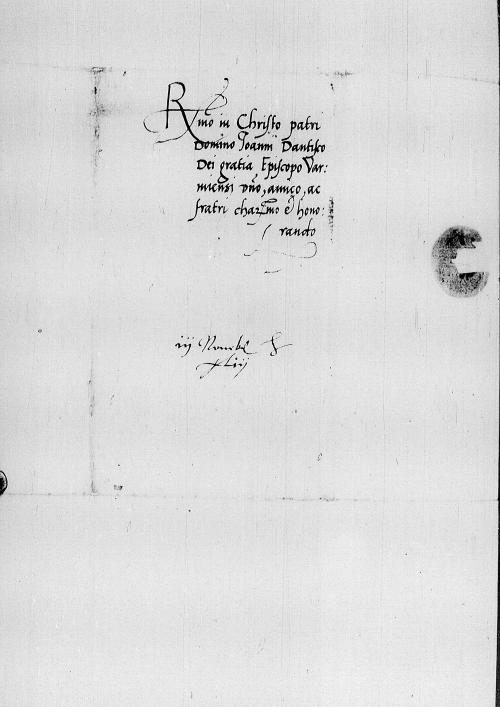 Rmo in Christo patri
Domino Joanni Dantisco
Dei gratia Episcopo Var:
miensi dno, amico, ac
fratri charmo et hono:
rando
iij Novembr
xlij